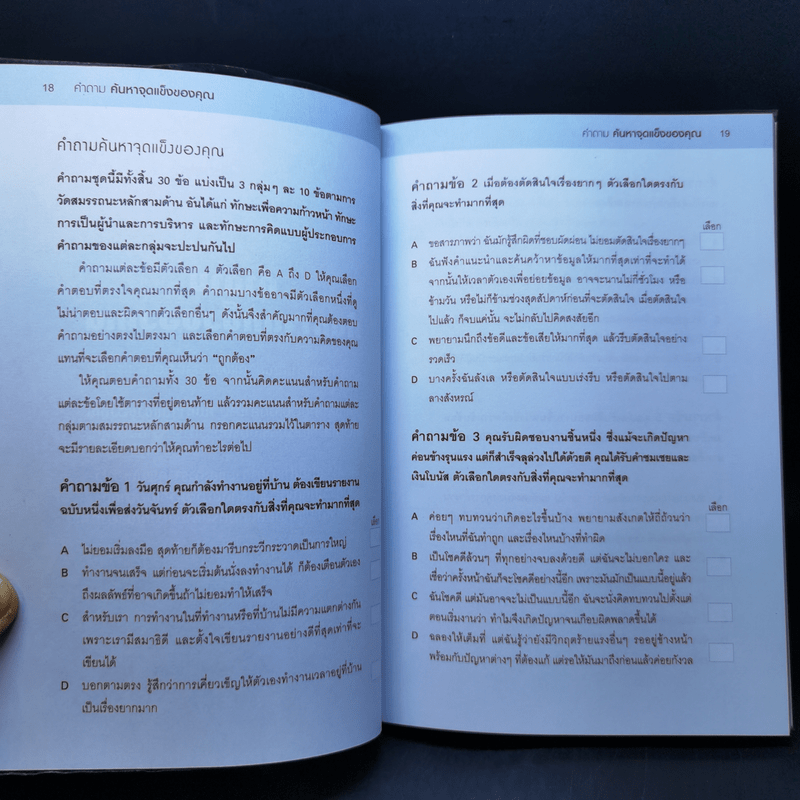 18 คำถาม ค้นหาจุดแข็งของคุณ
คำถามค้นหาจุดแข็งของคุณ
คำถามชุดนี้มีทั้งสิ้น 30 ข้อ แบ่งเป็น 3 กลุ่มๆ ละ 10 ข้อตามการ
วัดสมรรถนะหลักสามด้าน อันได้แก่ ทักษะเพื่อความก้าวหน้า ทักษะ
การเป็นผู้นำและการบริหาร และทักษะการคิดแบบผู้ประกอบการ
คำถามของแต่ละกลุ่มจะปะปนกันไป
คำถามแต่ละข้อมีตัวเลือก 4 ตัวเลือก คือ A ถึง D ให้คุณเลือก
คำตอบที่ตรงใจคุณมากที่สุด คำถามบางข้ออาจมีตัวเลือกหนึ่งที่ดู
ไม่น่าตอบและผิดจากตัวเลือกอื่นๆ ดังนั้นจึงสำคัญมากที่คุณต้องตอบ
คำถามอย่างตรงไปตรงมา และเลือกคำตอบที่ตรงกับความคิดของคุณ
แทนที่จะเลือกคำตอบที่คุณเห็นว่า "ถูกต้อง"
ให้คุณตอบคำถามทั้ง 30 ข้อ จากนั้นคิดคะแนนสำหรับคำถาม
แต่ละข้อโดยใช้ตารางที่อยู่ตอนท้าย แล้วรวมคะแนนสำหรับคำถามแต่ละ
กลุ่มตามสมรรถนะหลักสามด้าน กรอกคะแนนรวมไว้ในตาราง สุดท้าย
จะมีรายละเอียดบอกว่าให้คุณทำอะไรต่อไป
คำถามข้อ 1 วันศุกร์ คุณกำลังทำงานอยู่ที่บ้าน ต้องเขียนรายงาน
ฉบับหนึ่งเพื่อส่งวันจันทร์ ตัวเลือกใดตรงกับสิ่งที่คุณจะทำมากที่สุด
เลือก
A ไม่ยอมเริ่มลงมือ สุดท้ายก็ต้องมารีบกระวีกระวาดเป็นการใหญ่
B ทำงานจนเสร็จ แต่ก่อนจะเริ่มต้นนั่งลงทำงานได้ ก็ต้องเตือนตัวเอง
ถึงผลลัพธ์ที่อาจเกิดขึ้นถ้าไม่ยอมทำให้เสร็จ
C สำหรับเรา การทำงานในที่ทำงานหรือที่บ้านไม่มีความแตกต่างกัน
เพราะเรามีสมาธิดี และตั้งใจเขียนรายงานอย่างดีที่สุดเท่าที่จะ
เขียนได้
D บอกตามตรง รู้สึกว่าการเคี่ยวเข็ญให้ตัวเองทำงานเวลาอยู่ที่บ้าน
เป็นเรื่องยากมาก
คำถาม ค้นหาจุดแข็งของคุณ 19
คำถามข้อ 2 เมื่อต้องตัดสินใจเรื่องยากๆ ตัวเลือกใดตรงกับ
สิ่งที่คุณจะทำมากที่สุด
เลือก
A ขอสารภาพว่า ฉันมักรู้สึกผิดที่ชอบผัดผ่อน ไม่ยอมตัดสินใจเรื่องยากๆ
B ฉันฟังคำแนะนำและค้นคว้าหาข้อมูลให้มากที่สุดเท่าที่จะทำได้
จากนั้นให้เวลาตัวเองเพื่อย่อยข้อมูล อาจจะนานไม่กี่ชั่วโมง หรือ
ข้ามวัน หรือไม่ก็ข้ามช่วงสุดสัปดาห์ก่อนที่จะตัดสินใจ เมื่อตัดสินใจ
ไปแล้ว ก็จบแค่นั้น จะไม่กลับไปคิดสงสัยอีก
C พยายามนึกถึงข้อดีและข้อเสียให้มากที่สุด แล้วรีบตัดสินใจอย่าง
รวดเร็ว
D บางครั้งฉันลังเล หรือตัดสินใจแบบเร่งรีบ หรือตัดสินใจไปตาม
ลางสังหรณ์
คำถามข้อ 3 คุณรับผิดชอบงานชิ้นหนึ่ง ซึ่งแม้จะเกิดปัญหา
ค่อนข้างรุนแรง แต่ก็สำเร็จลุล่วงไปได้ด้วยดี คุณได้รับคำชมเชยและ
เงินโบนัส ตัวเลือกใดตรงกับสิ่งที่คุณจะทำมากที่สุด
เลือก
A ค่อยๆ ทบทวนว่าเกิดอะไรขึ้นบ้าง พยายามสังเกตให้ถี่ถ้วนว่า
เรื่องไหนที่ฉันทำถูก และเรื่องไหนบ้างที่ทำผิด
B เป็นโชคดีล้วนๆ ที่ทุกอย่างจบลงด้วยดี แต่ฉันจะไม่บอกใคร และ
เชื่อว่าครั้งหน้าฉันก็จะโชคดีอย่างนี้อีก เพราะมันมักเป็นแบบนี้อยู่แล้ว
C ฉันโชคดี แต่มันอาจจะไม่เป็นแบบนี้อีก ฉันจะนั่งคิดทบทวนไปตั้งแต่
ตอนเริ่มงานว่า ทำไมจึงเกิดปัญหาจนเกือบผิดพลาดขึ้นได้
D ฉลองให้เต็มที่ แต่ฉันรู้ว่ายังมีวิกฤตร้ายแรงอื่นๆ รออยู่ข้างหน้า
พร้อมกับปัญหาต่างๆ ที่ต้องแก้ แต่รอให้มันมาถึงก่อนแล้วค่อยกังวล